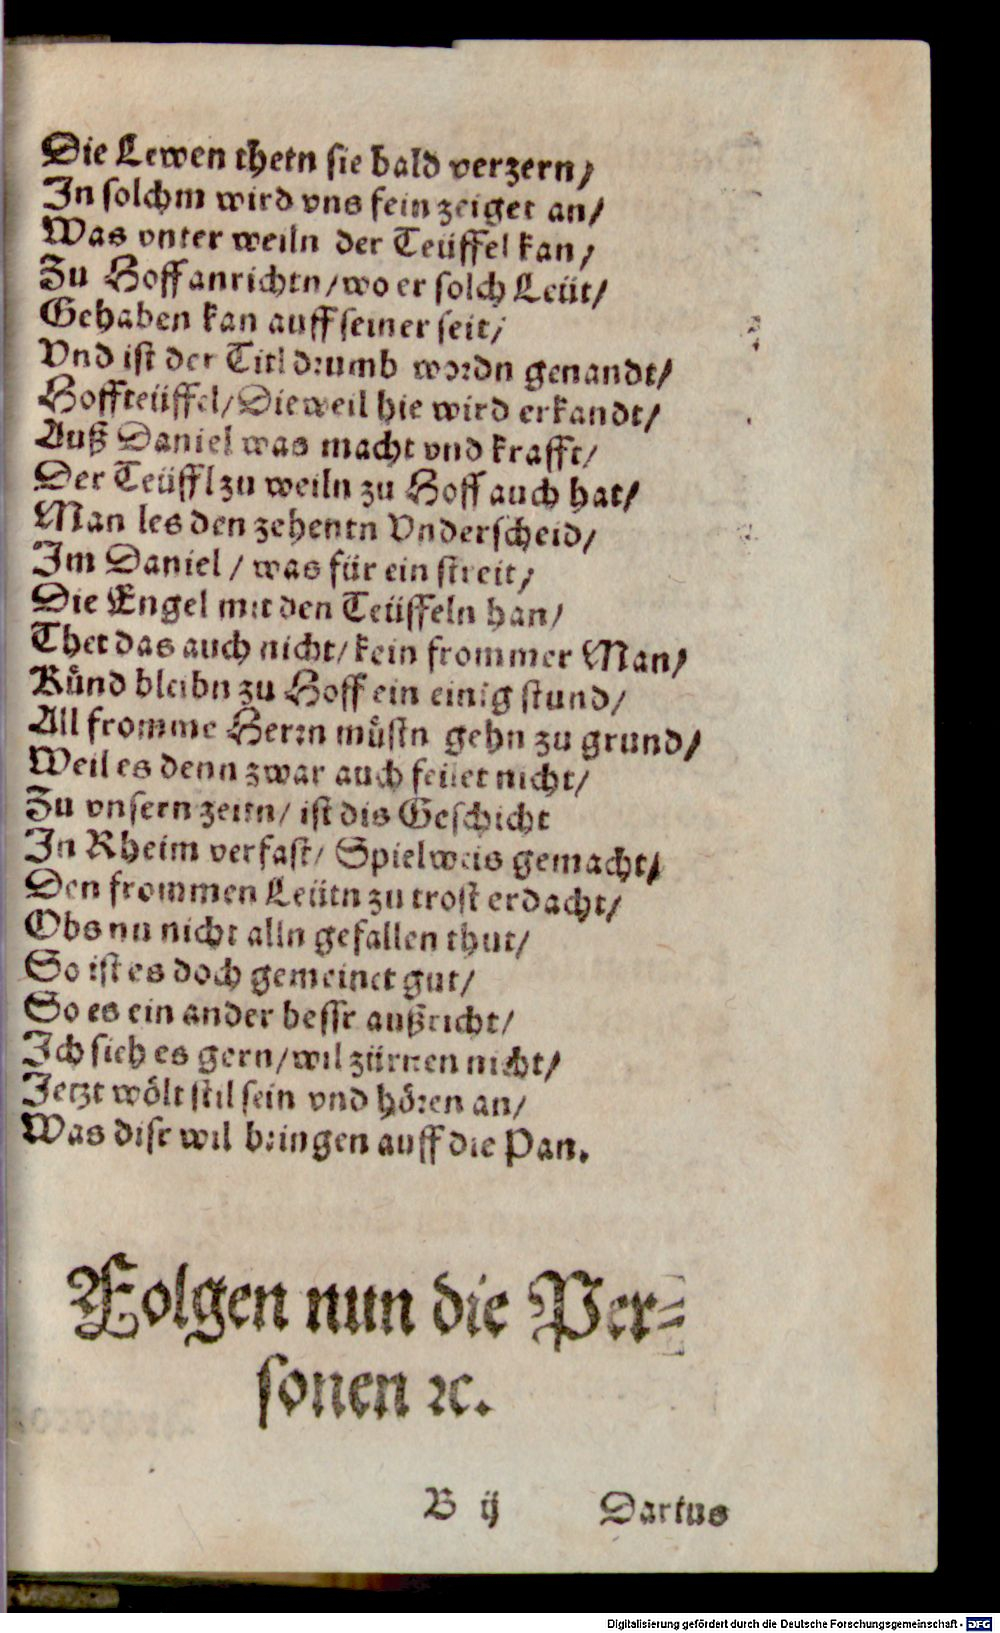 Die Lewen thetn sie bald verzern/
In solchm wird vns fein zeiget an/
Was vnter weiln der Teüffel kan/
Zu Hoff anrichtn/wo er solch Leüt/
Gehaben kan auff seiner seit/
Vnd ist der Titl drumb wordn genandt/
Hoffteüffel/Dieweil hie wird erkandt/
Auß Daniel was macht vnd krafft/
Der Teüffl zu weiln zu Hoff auch hat/
Man les den zehentn Vnderscheid/
Im Daniel / was für ein streit/
Die Engel mit den Teüffeln han/
Thet das auch nicht/kein frommer Man/
Kuͤnd bleibn zu Hoff ein einig stund/
All fromme Herrn muͤstn gehn zu grund/
Weil es denn zwar auch feilet nicht/
Zu vnsern zeitn/ ist dis Geschicht
In Rheim verfast/ Spielweis gemacht/
Den frommen Leütn zu trost erdacht/
Obs nu nicht alln gefallen thut/
So ist es doch gemeinet gut/
So es ein ander bessr außricht/
Ich sieh es gern/wil zürnen nicht/
Jetzt woͤlt stil sein vnd hoͤren an/
Was disr wil bringen auff die Pan.
Folgen nun die Per=
sonen ꝛc.
B ij Darius
Digitalisierung gefördert durch die Deutsche Forschungsgemeinschaft - DFG